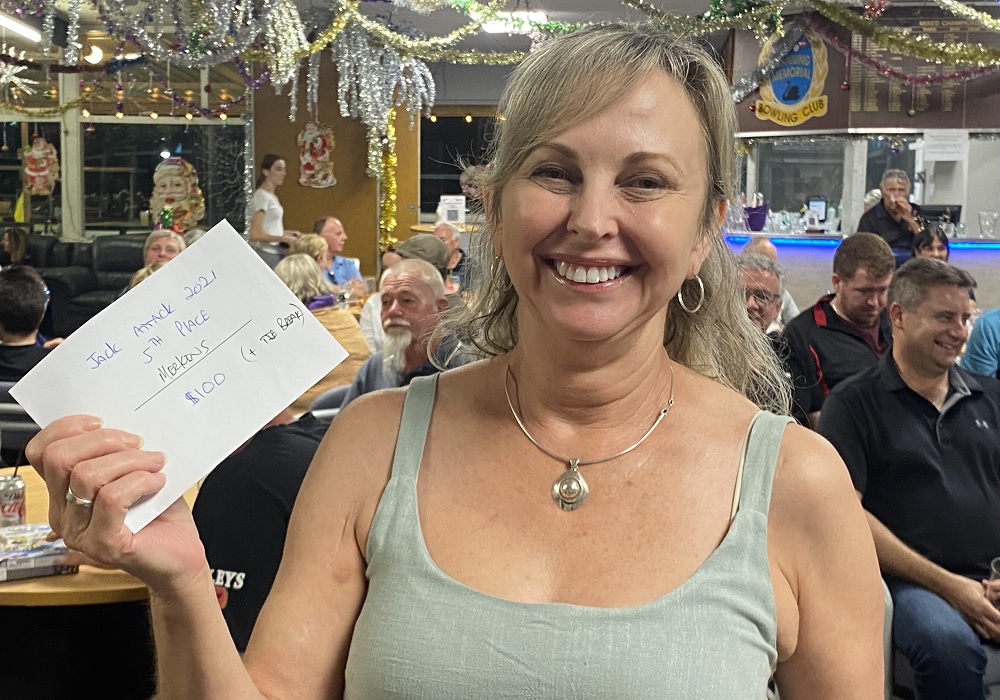 JACK ATTACK 2021
5TH PLACE
(+ TIE BREAK)
$100
NNING
MEMORIAL
BOWLING CLUB
MIXED CHAMPI
LEYS